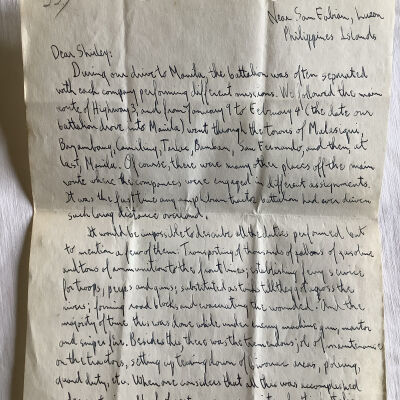 Near San Fabian, Luzon
Philippines Islands
Dear Shirley:
During our drive to Manila, the battalion was often separated
with each company performing different missions. We followed the main
route of Highway 3, and from January 9 to February 4 (the date our
battalion drove into Manila) went through the towns of Malasiqui,
Bayambang, Camiling, Tarlac, Bamban, San Fernando, and then at
last, Manila. Of course, there were many other places off the main
route where the companies were engaged in different assignments.
It was the first time any amphibian tractor battalion had ever driven
such long distance overland.
It would be impossible to describe all the duties performed, but
to mention a few of them: Transporting of thousands of gallons of gasoline
and tons of ammunition to the front lines; establishing ferry service
for troops, jeeps and guns; substituted as tanks till they got across the
rivers; formed road blocks and evacuating the wounded. And the
majority of time this was done while under enemy machine gun, mortar
and sniper fire. Besides this there was the tremendous job of maintenance
on the tractors, setting up tearing down of bivouac areas,
guard duty, etc. When one considers that all this was accomplished